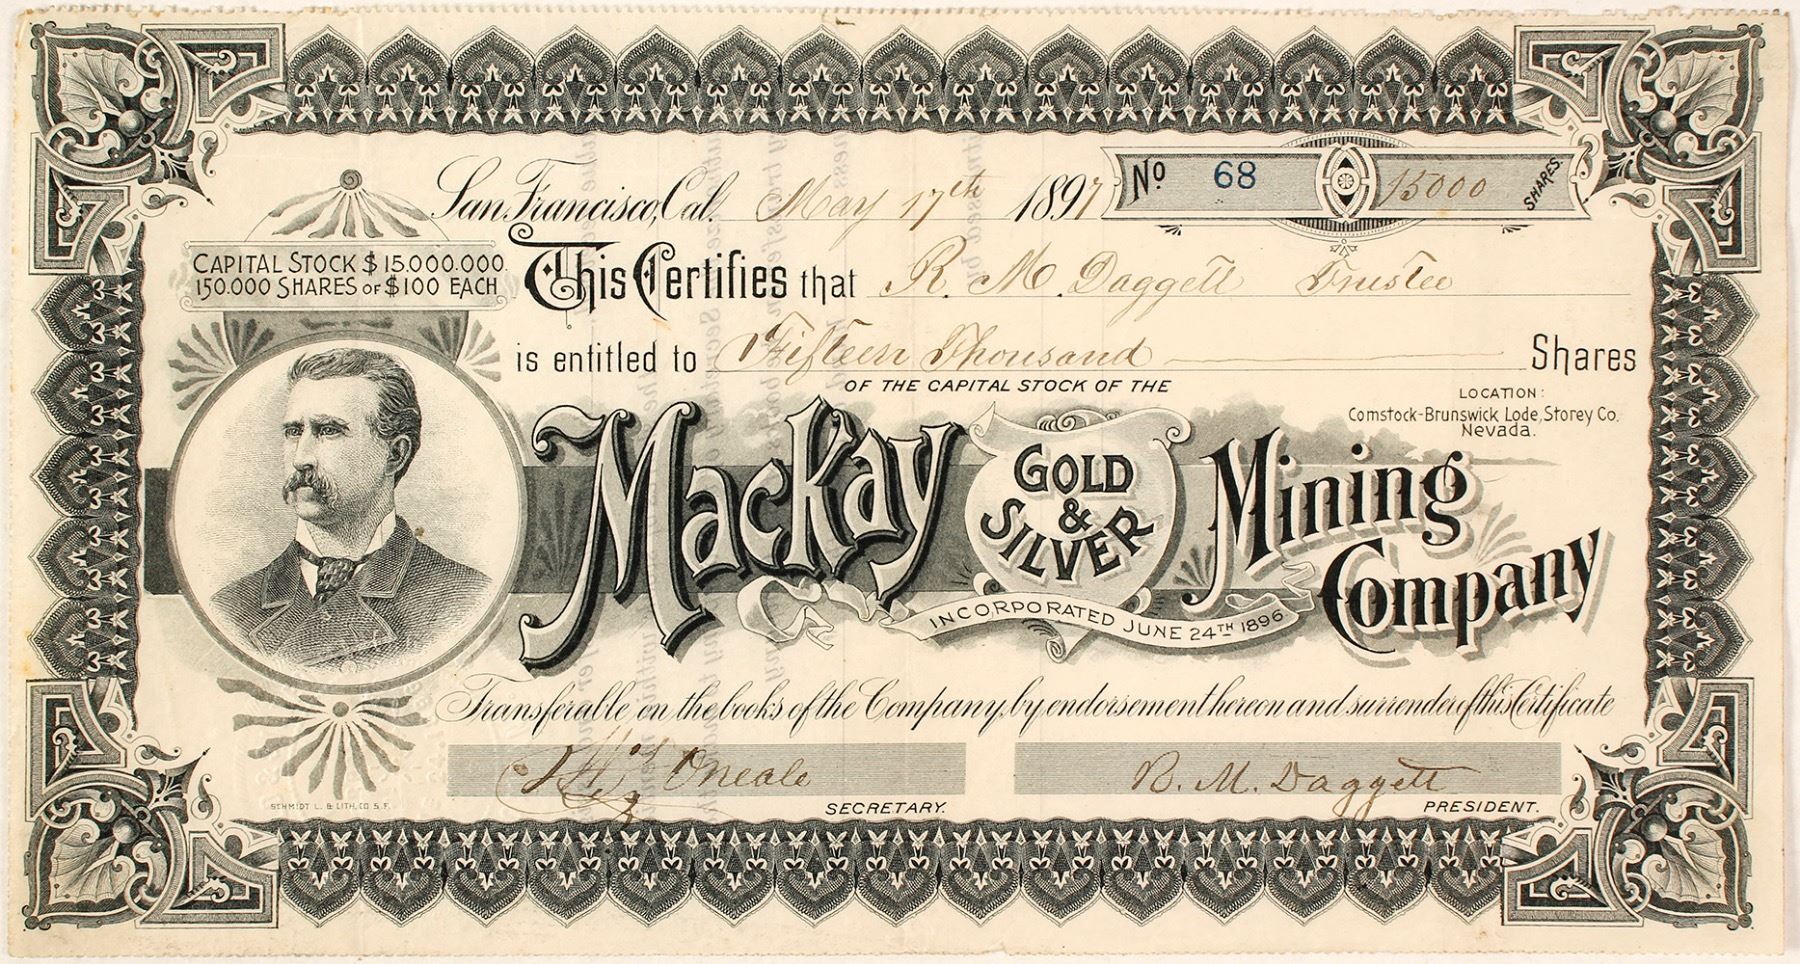 San Francisco, Cal. May 17th 1897 No 68 15000 SHARES.
CAPITAL STOCK $ 15.000.000.
150.000 SHARES OF $100 EACH
This Certifies that R. M. Daggett Trustee
is entitled to Fifteen Thousand Shares
OF THE CAPITAL STOCK OF THE
LOCATION:
Comstock-Brunswick Lode, Storey Co.
Nevada.
Mackay
GOLD
&
SILVER
Mining
Company
INCORPORATED JUNE 24TH 1896
Transferable on the books of the Company, by endorsement hereon and surrender of this Certificate
Oneale
SECRETARY.
R. M. Daggett
PRESIDENT.
SCHMIDT L. & LITH. CO S. F.